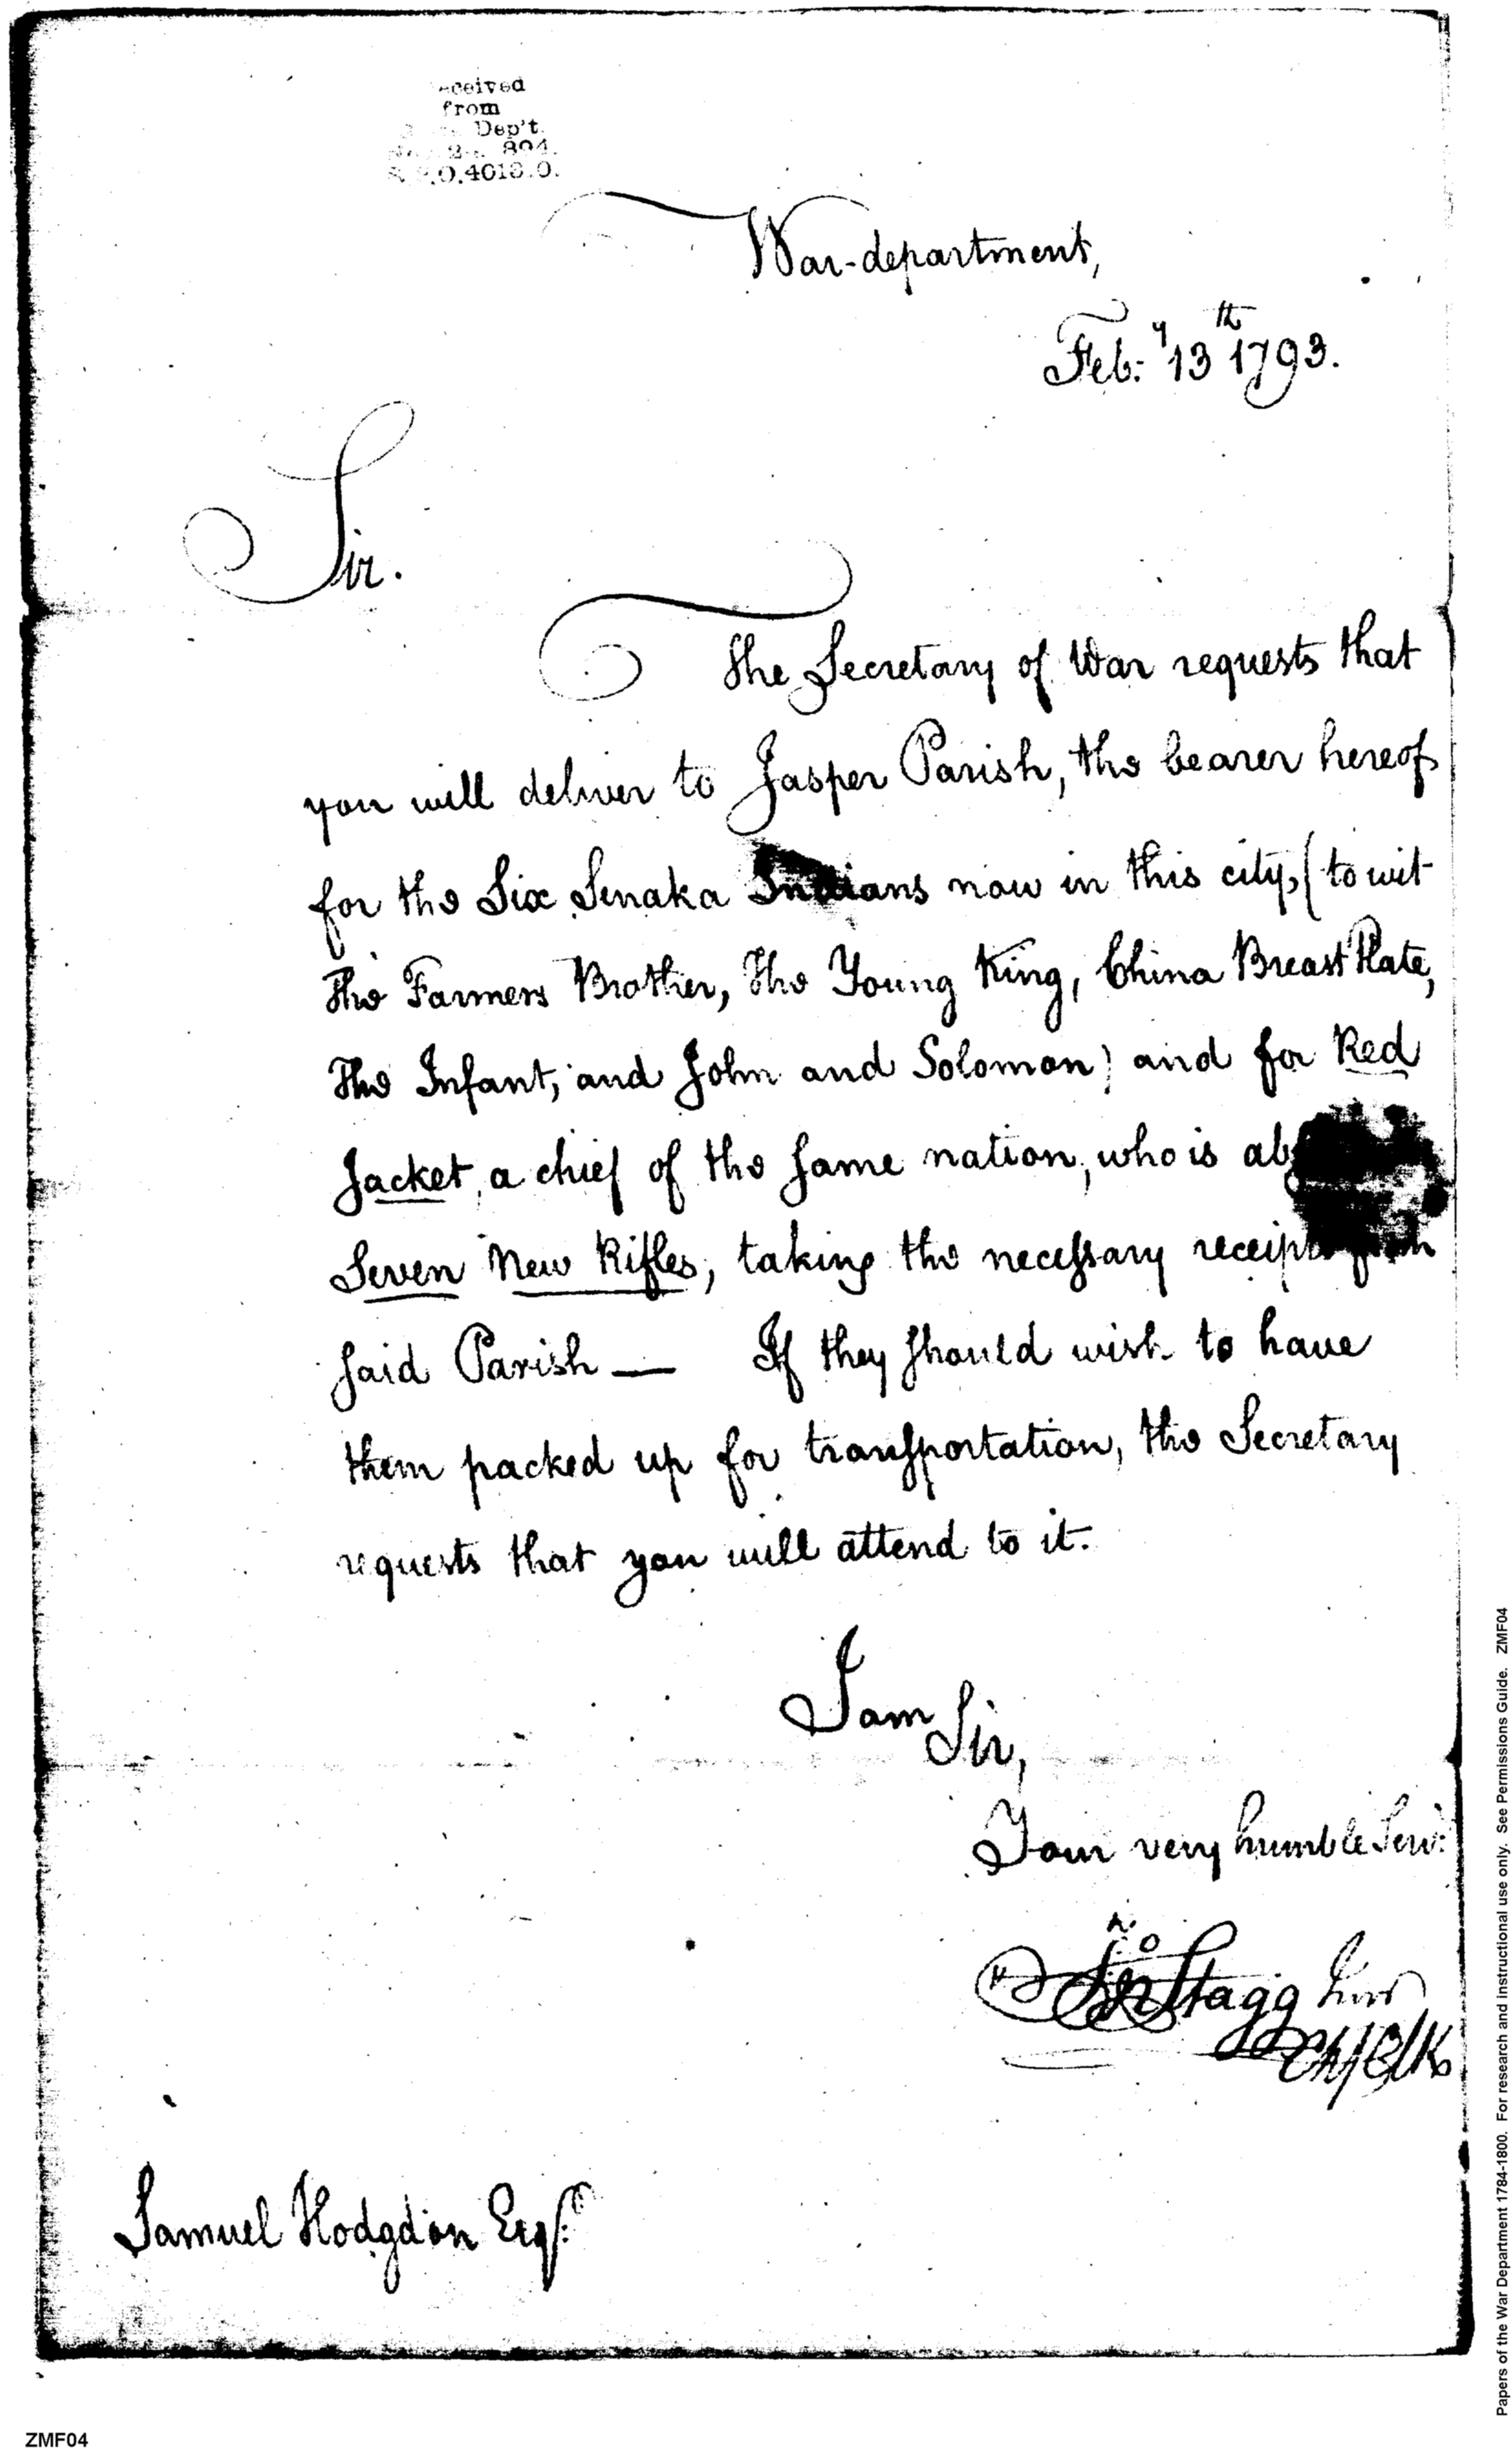 eceived
from
Dep't.
894.
.O.4013.0.
War-department,
Feb:y 13th 1793.
Sir.
The Secretary of War requests that
you will deliver to Jasper Parish, the bearer hereof
for the Six Senaka Indians now in this city, (to wit
The Farmers Brother, The Young King, China Breast Plate,
The Infant, and John and Solomon) and for Red
Jacket, a chief of the same nation, who is ab
Seven New Rifles, taking the necessary receipts from
said Parish — If they should wish to have
them packed up for transportation, the Secretary
requests that you will attend to it.
I am
Sir,
Your very humble Servt:
Jno Stagg Junr
Chf Clk
Samuel Hodgdon Esqr.
ZMF04
Papers of the War Department 1784-1800. For research and instructional use only. See Permissions Guide. ZMF04